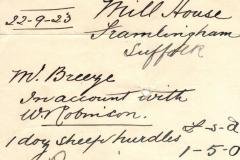 22-9-23 Mill House
Framlingham
Suffolk
Mr Breeze
In account with
W Robinson.
£-s-d
1 day sheep hurdles 1-5-0